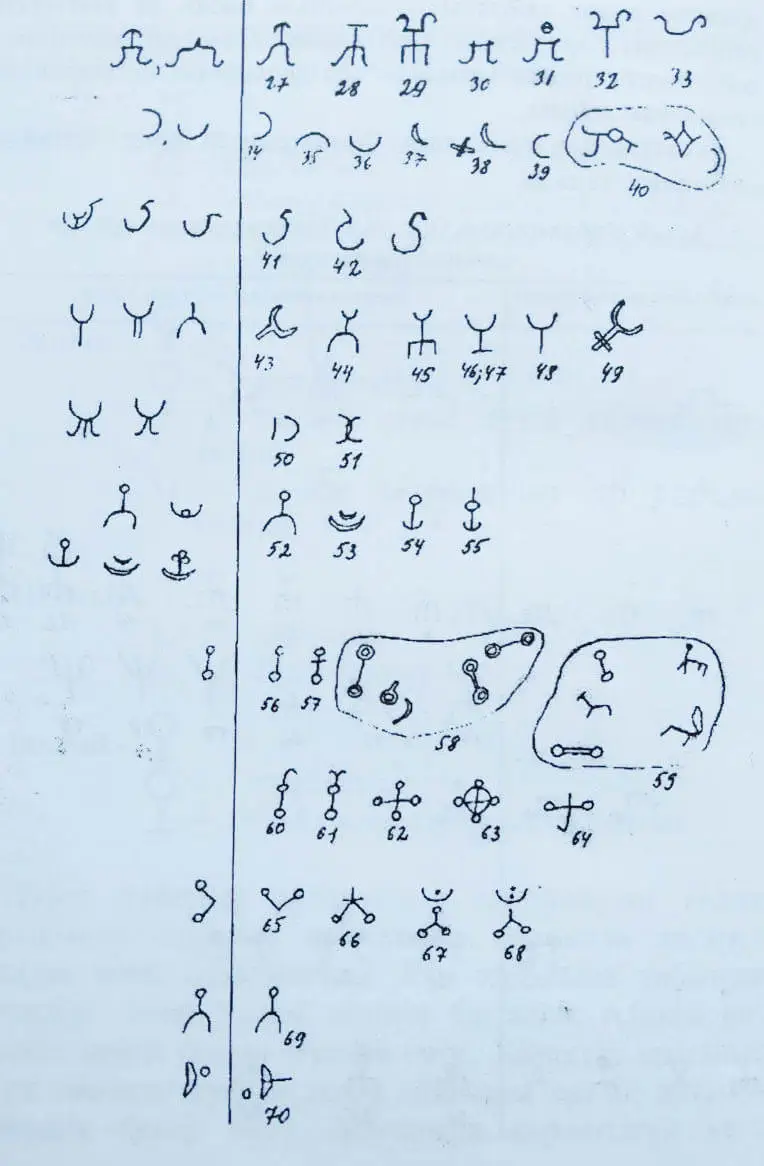 27 28 29 30 31 32 33
34 35 36 37 38 39 40
41 42
43 44 45 46;47 48 49
50 51
52 53 54 55
56 57 58 59
60 61 62 63 64
65 66 67 68
69
70